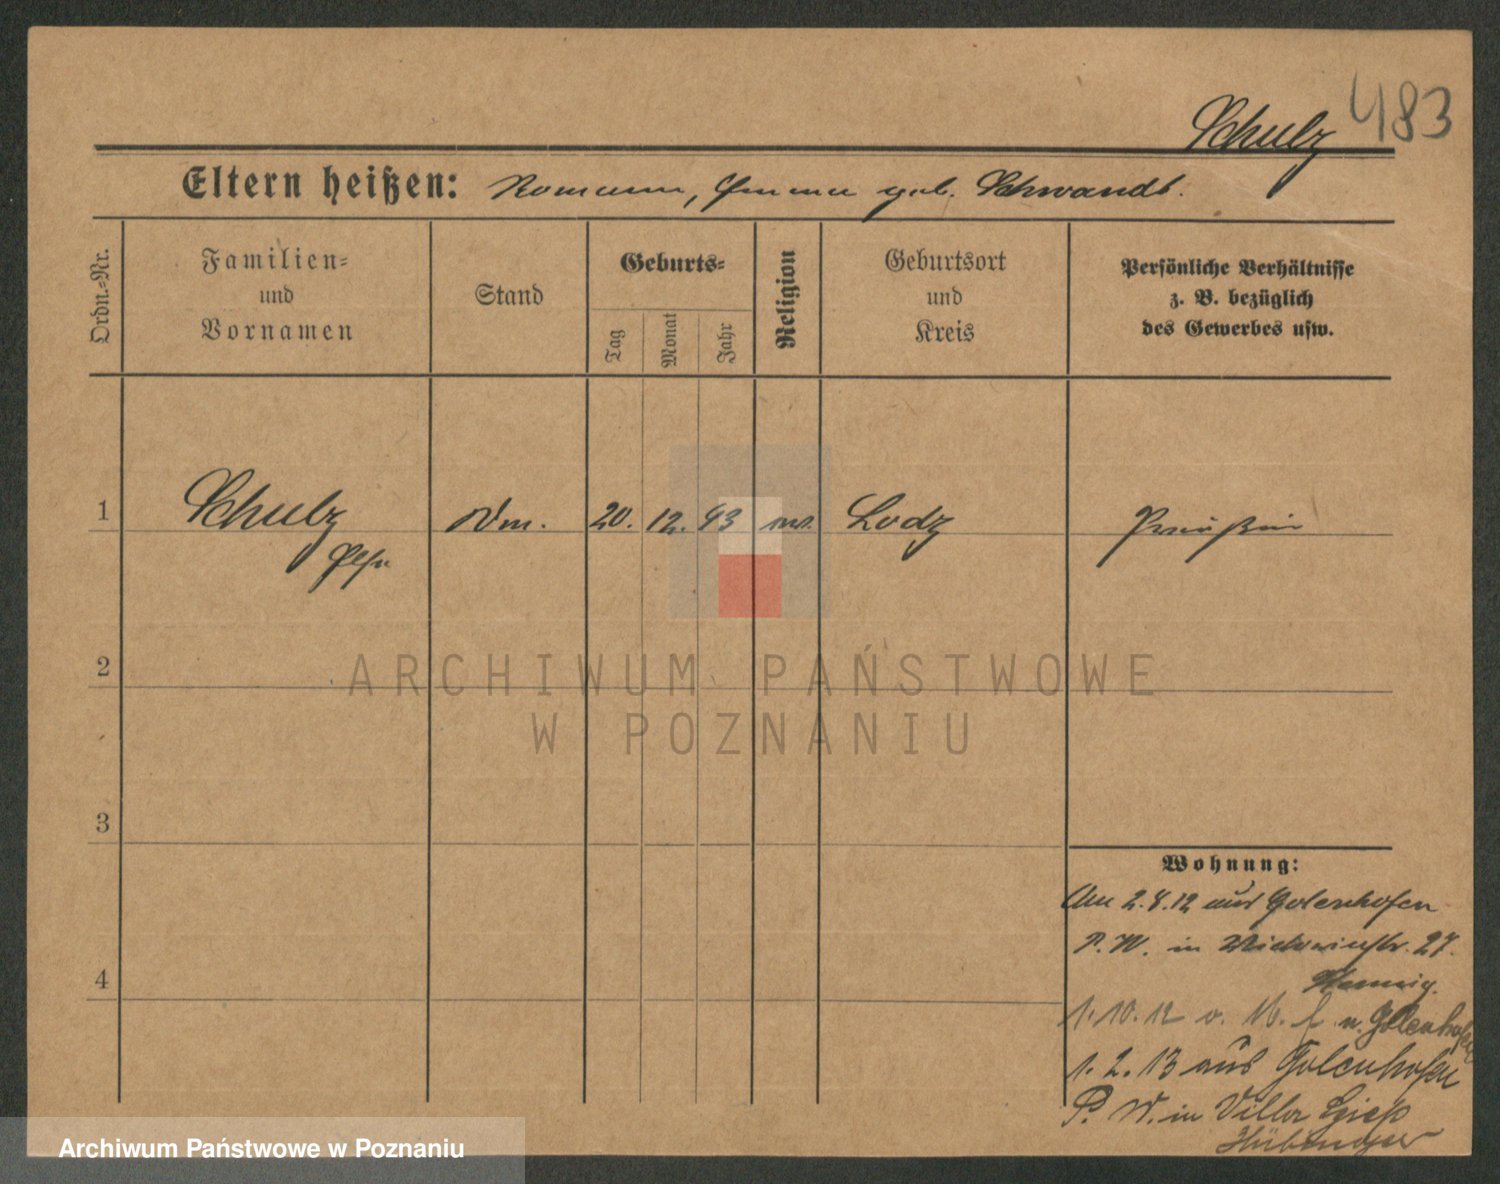 Schulz 483
Eltern heißen: Romann, Emma geb. Schwandt.
Ordn.-Nr.
Familien-
und
Vornamen
Stand
Geburts-
Tag
Monat
Jahr
Religion
Geburtsort
und
Kreis
Persönliche Verhältnisse
z. B. bezüglich
des Gewerbes usw.
1 Schulz 20. 12. 93 Lodz
2
3
4
Wohnung:
Am 2.8.12 aus Golenhofen
P. W. in 27.
Hennig.
1.10.12 v. n. Golenhofen
1.2.13 aus Golenhofen
P. W. in Villa
ARCHIWUM PAŃSTWOWE
W POZNANIU
Archiwum Państwowe w Poznaniu